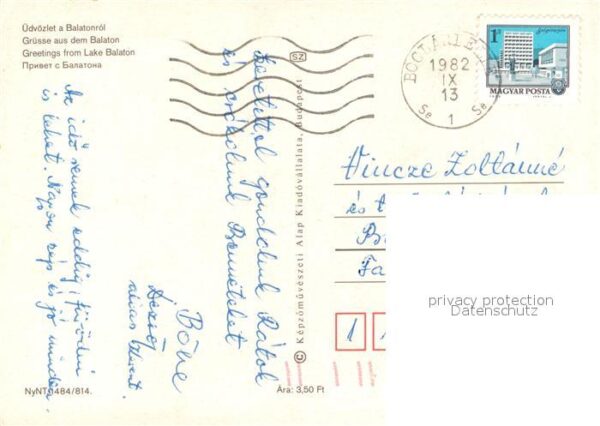 Üdvözlet a Balatonról
Grüsse aus dem Balaton
Greetings from Lake Balaton
Привет с Балатона
SZ
1 Ft
Salgótarján
MAGYAR POSTA
1982
IX
13
Se Se
1
Szeretettel gondolunk Rátok
és csókolunk Benneteket
Böbe
Az idő remek eddig, fürödni
is lehet. Nagyon szép és jó minden.
© Képzőművészeti Alap Kiadóvállalata, Budapest
Vincze Zoltánné
és
1
privacy protection
Datenschutz
NyNT 1484/814.
Ára: 3,50 Ft